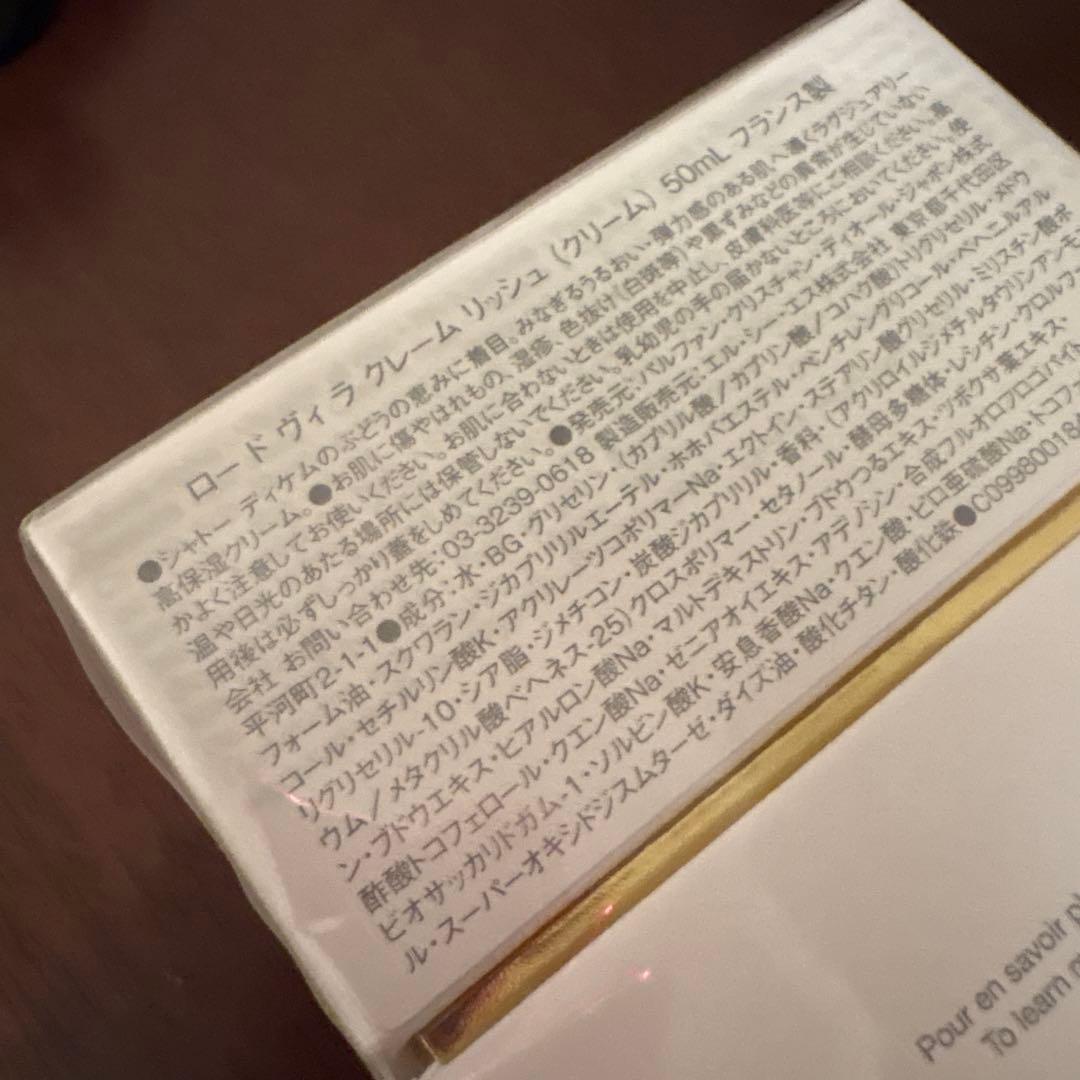 ロード ヴィラ クレーム リッシュ (クリーム) 50mL フランス製
●シャトー ディケムのぶどうの恵みに着目。みなぎるうるおい 弾力感のある肌へ導くラグジュアリー
高保湿クリーム。●お肌に傷やはれもの、湿疹、色抜け(白斑等)や黒ずみなどの異常が生じていない
かよく注意してお使いください。お肌に合わないときは使用を中止し、皮膚科医等にご相談ください。高
温や日光のあたる場所には保管しないでください。乳幼児の手の届かないところにおいてください。使
用後は必ずしっかり蓋をしめてください。●発売元:パルファン・クリスチャン・ディオール・ジャポン株式
会社 お問い合わせ先:03-3239-0618 製造販売元:エル・シー・エス株式会社 東京都千代田区
平河町2-1-1●成分:水・BG・グリセリン・(カプリル酸/カプリン酸/コハク酸)トリグリセリル・メドウ
フォーム油・スクワラン・ジカプリリルエーテル・ホホバエステル・ペンチレングリコール・ベヘニルアル
コール・セチルリン酸K・アクリレーツコポリマーNa・エクトイン・ステアリン酸グリセリル・ミリスチン酸ポ
リグリセリル-10・シア脂・ジメチコン・炭酸ジカプリリル・香料・(アクリロイルジメチルタウリンアンモ
ウム/メタクリル酸ベヘネス-25)クロスポリマー・セタノール・酵母多糖体・レシチン・クロルフェ
ン・ブドウエキス・ヒアルロン酸Na・マルトデキストリン・ブドウつるエキス・ツボクサ葉エキス・
酢酸トコフェロール・クエン酸Na・ゼニアオイエキス・アデノシン・合成フルオロフロゴパイト
ビオサッカリドガム-1・ソルビン酸K・安息香酸Na・クエン酸・ピロ亜硫酸Na・トコフェ
ル・スーパーオキシドジスムターゼ・ダイズ油・酸化チタン・酸化鉄●C09980018
Pour en savoir
To learn